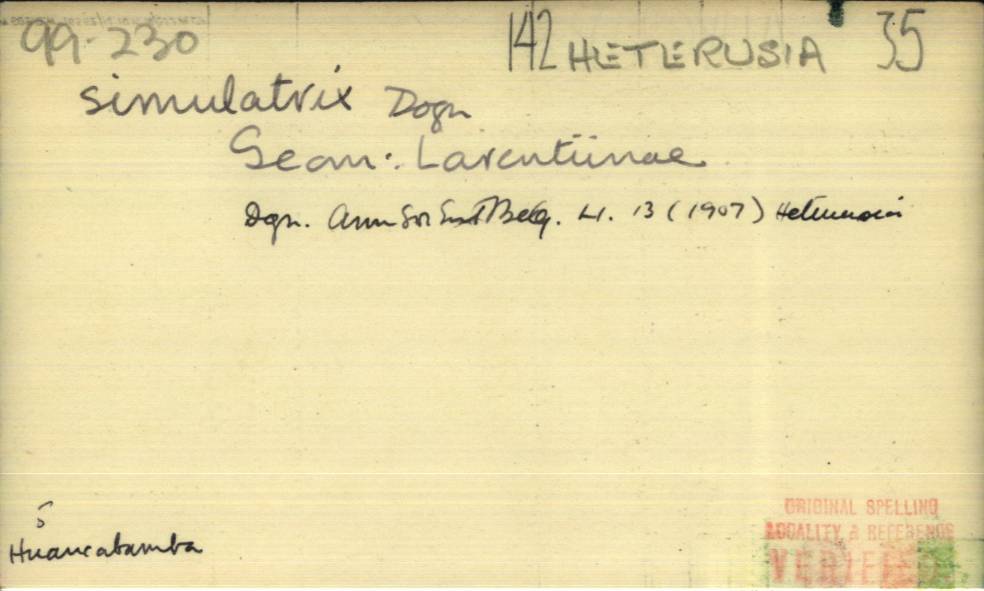 99-230 142 HETERUSIA 35
simulatrix Dogn
Geom: Larentiinae
Dgn. Ann Soc Ent Belg. LI. 13 (1907) Heterusia
5
Huancabamba
ORIGINAL SPELLING
LOCALITY & REFERENCE
VERIFIED